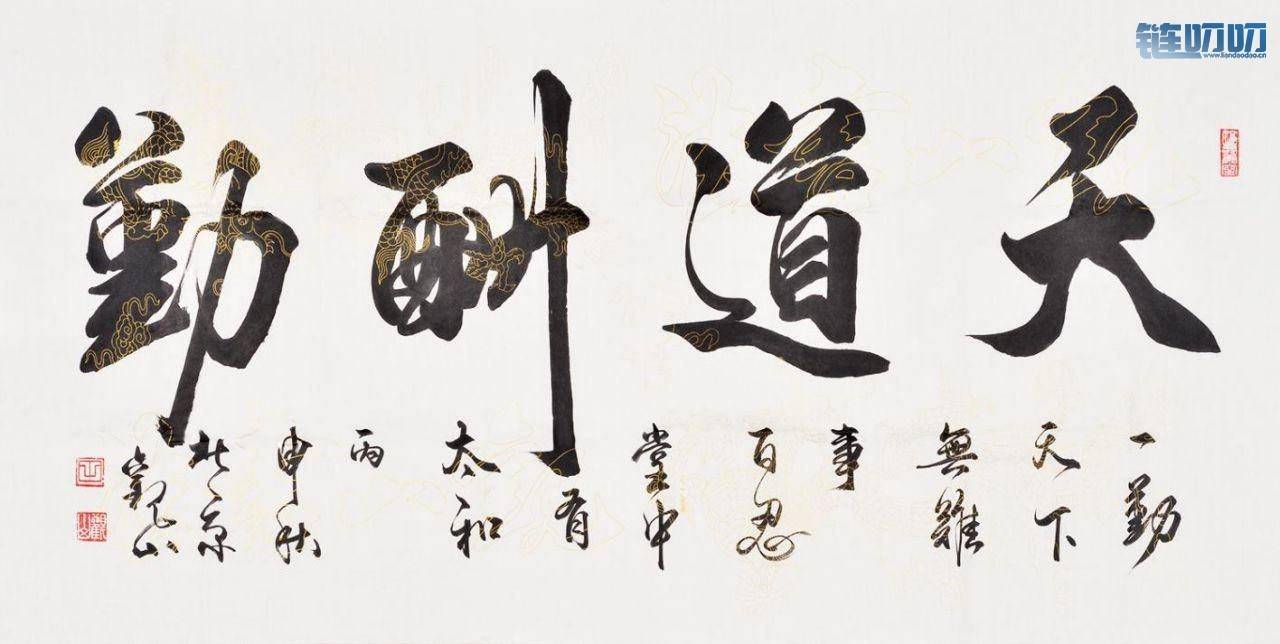 天道酬勤
一勤
天下
無難
事
百忍
堂中
有
太和
丙
申秋
北京
觀山
链叨叨
www.liandaodao.cn